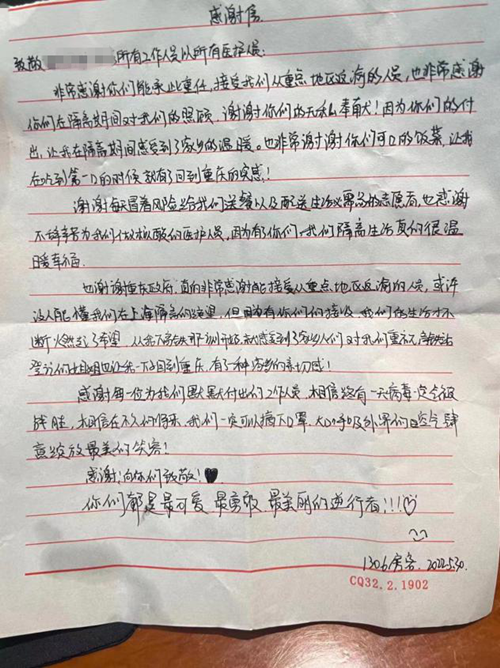 感谢信
致敬 所有工作人员以所有医护人员:
非常感谢你们能承此重任,接受我们从重点地区返渝的人员,也非常感谢
你们在隔离期间对我们的照顾,谢谢你们的无私奉献!因为你们的付
出,让我在隔离期间感受到了家乡的温暖。也非常谢谢你们可口的饭菜,让我
在吃到第一口的时候就有了回到重庆的实感!
谢谢每天冒着风险给我们送餐以及配送生活必需品的志愿者,也感谢
不辞辛苦为我们做核酸的医护人员,因为有了你们,我们隔离生活真的很温
暖幸福
也谢谢重庆政府,真的非常感谢能接受从重点地区返渝的人员,或许
没人能懂我们在上海隔离的绝望,但因为有你们的接收,我们的生活才
不断火然起了希望
一下子回到重庆,有了一种家乡的亲切感!
感谢每一位为我们默默付出的工作人员,相信总有一天病毒一定会被
战胜,相信在不久的将来,我们一定可以摘下口罩,大口呼吸外界的空气,肆
意绽放最美的笑容!
感谢!向你们致敬!♥
你们都是最可爱 最高级 最美丽的逆行者!!!♡
1306房客.2022.5.30.
CQ32.2.1902